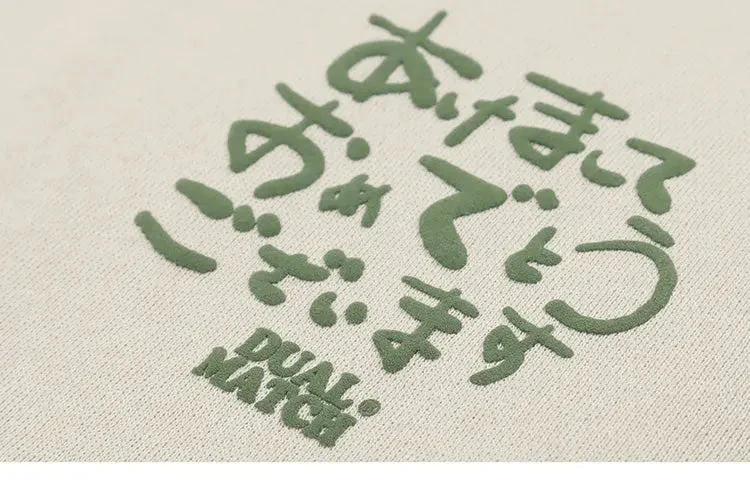 あけまして
おめでとう
ございます
DUAL
MATCH®